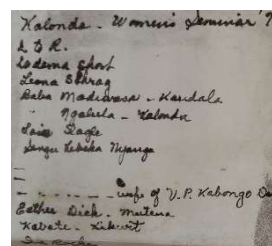 Kalonda - Women's Seminar '
L to R.
Lodema Short
Leona Schrag
Baba Madiwasa - Kandala
" Ngalula - Kalonda
Lois Slagle
Sengu Lebeka Nyanga
-
-
- wife of V.P. Kabongo
Esther Dick - Mutena
Kabate - Kikwit